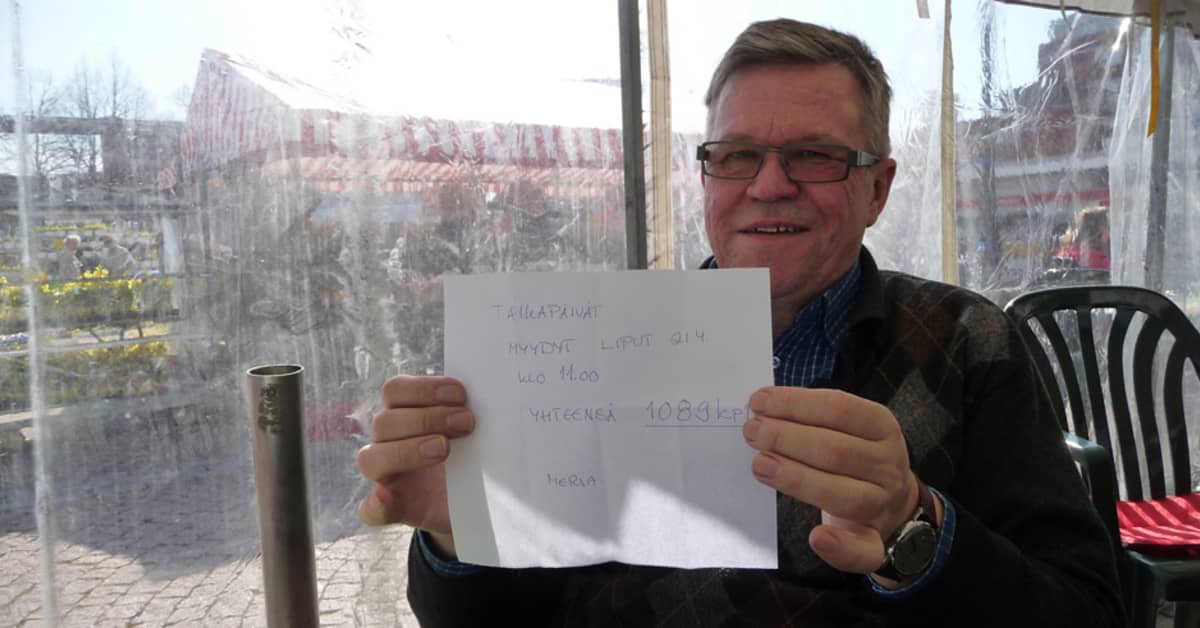 TAIKAPÄIVÄT
MYYDYT LIPUT 21.4.
KLO 11.00
YHTEENSÄ 1089 kpl
MERJA